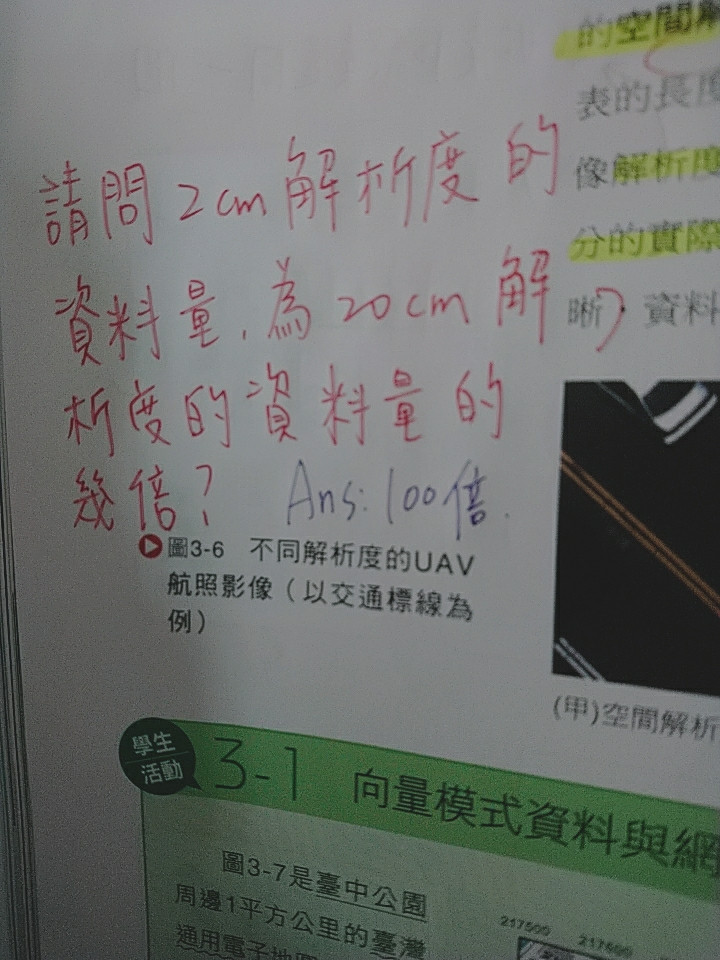 的空間解
表的長度
像解析度
分的實際
晰）。資料
請問2cm解析度的
資料量,為20cm解
析度的資料量的
幾倍? Ans:100倍.
圖3-6 不同解析度的UAV
航照影像（以交通標線為
例）
(甲)空間解析
學生
活動
3-1 向量模式資料與網
圖3-7是臺中公園
周邊1平方公里的臺灣
通用電子地圖
217500
217600